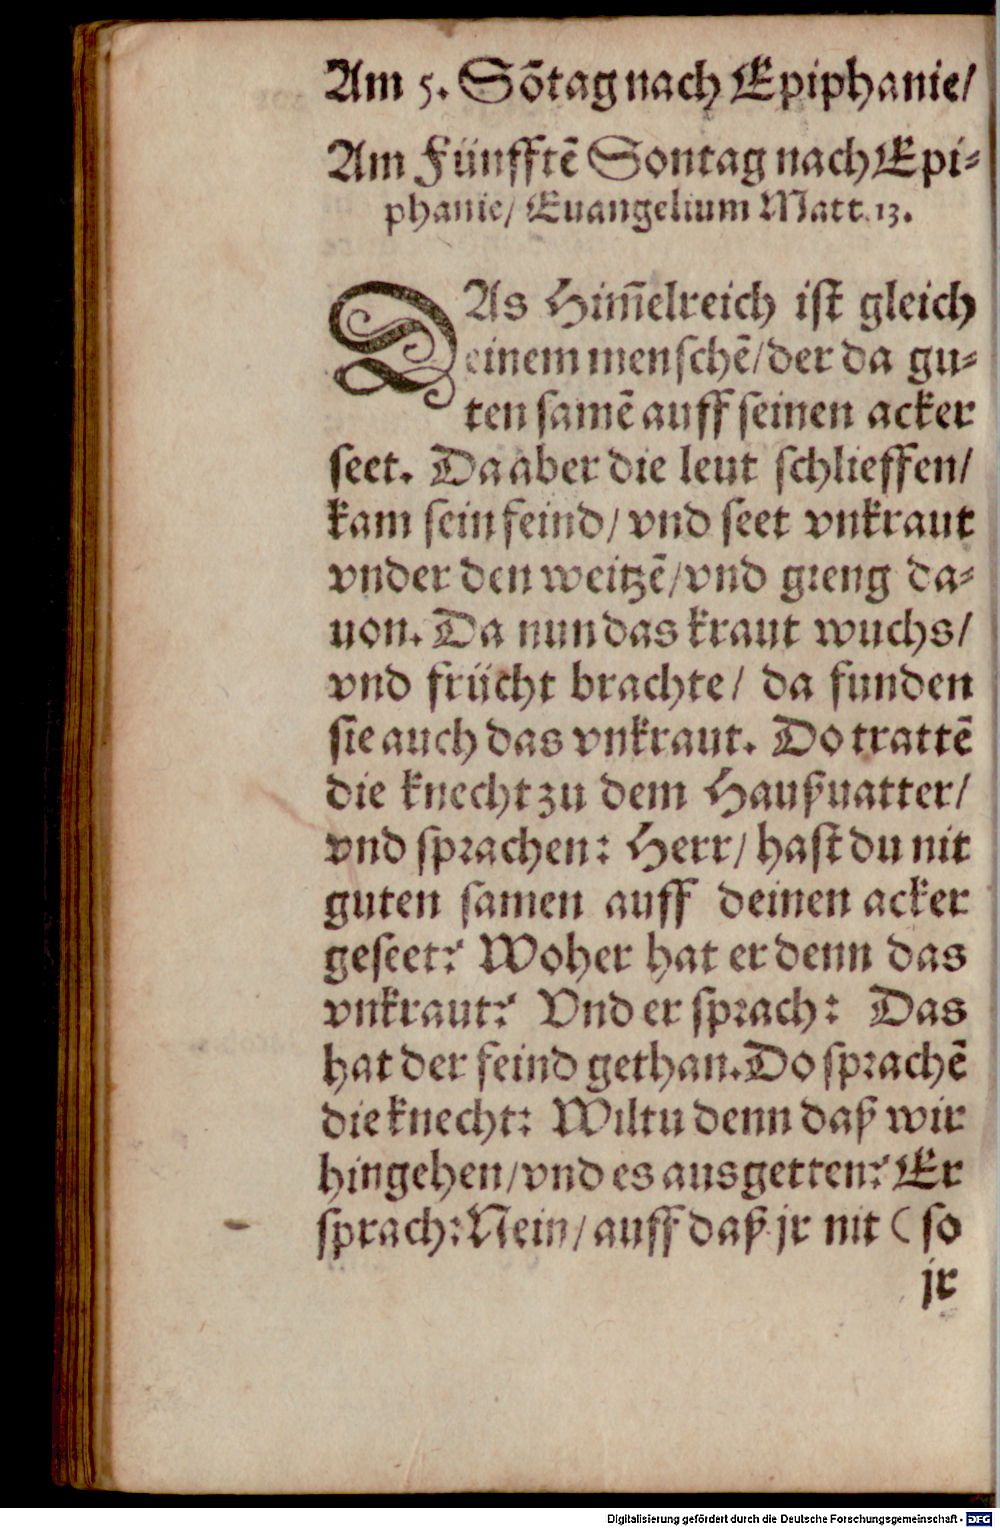 Am 5. Sōtag nach Epiphanie/
Am Fünfftē Sontag nach Epi-
phanie/ Euangelium Matt. 13.
DAs Him̄elreich ist gleich
einem menschē/ der da gu-
ten samē auff seinen acker
seet. Da aber die leut schlieffen/
kam sein feind/ vnd seet vnkraut
vnder den weitzē/ vnd gieng da-
uon. Da nun das kraut wuchs/
vnd frücht brachte/ da funden
sie auch das vnkraut. Do trattē
die knecht zu dem Haußuatter/
vnd sprachen: Herr/ hast du nit
guten samen auff deinen acker
geseet? Woher hat er denn das
vnkraut? Vnd er sprach: Das
hat der feind gethan. Do sprachē
die knecht: Wiltu denn daß wir
hingehen/ vnd es ausgetten? Er
sprach: Nein/ auff daß jr nit (so
jr
Digitalisierung gefördert durch die Deutsche Forschungsgemeinschaft - DFG